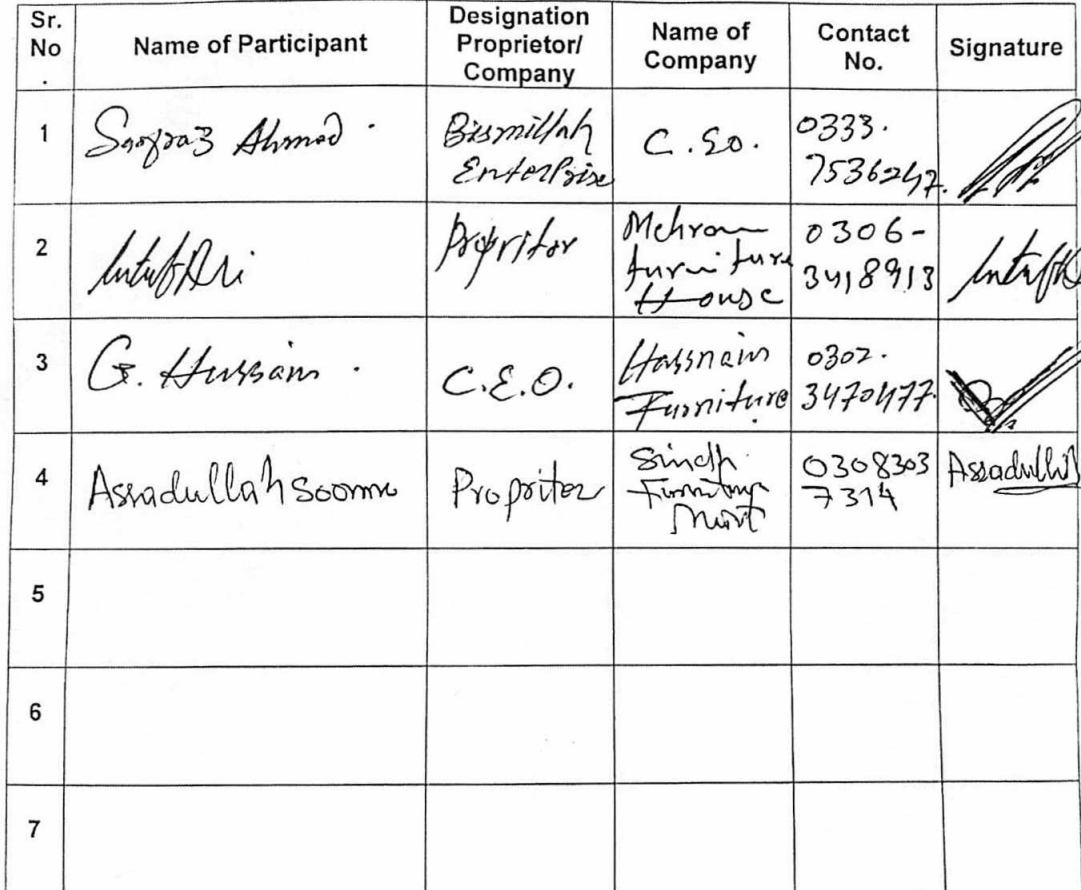 Sr. No . Name of Participant Designation Proprietor/ Company Name of Company Contact No. Signature
1 Sarfraz Ahmed . Bismillah Enterprise C.Eo. 0333. 7536247.
2 Ali Propritor Mehran furniture House 0306- 3418913
3 G. Hussain . C.E.O. Hassnain Furniture 0302. 3470477.
4 Assadullah Soomro Propritor Sindh Furniture Mart 0308303 7314 Assadullah
5
6
7